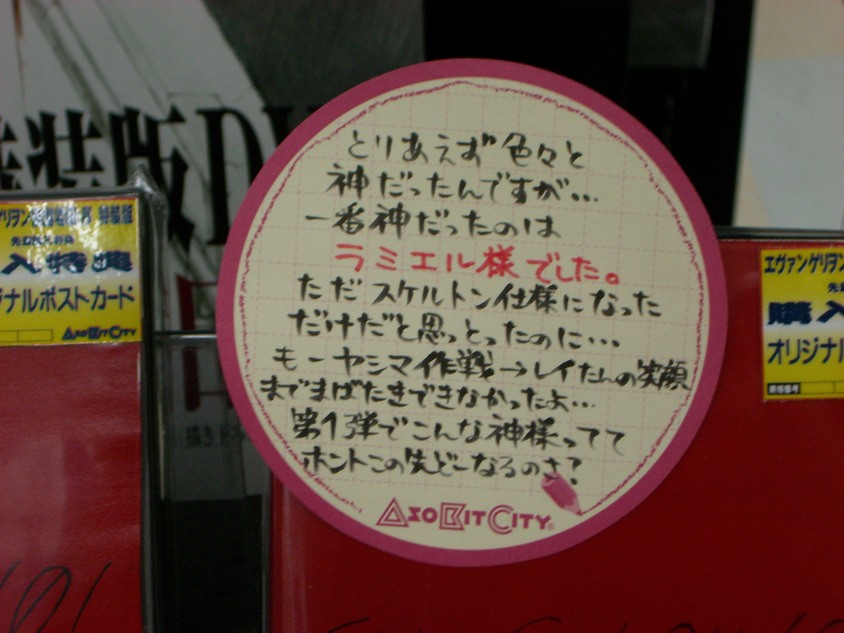 とりあえず色々と
神だったんですが…
一番神だったのは
ラミエル様でした。
ただスケルトン仕様になった
だけだと思っとったのに…
もーヤシマ作戦→レイたんの笑顔
までまばたきできなかったよ…
第1弾でこんな神様ってて
ホントこの先どーなるのさ?
ASOBITCITY
装版DV
特装版
入特典
ナルポストカード
ASOBITCITY
エヴァンゲリヲン
購入
オリジナル